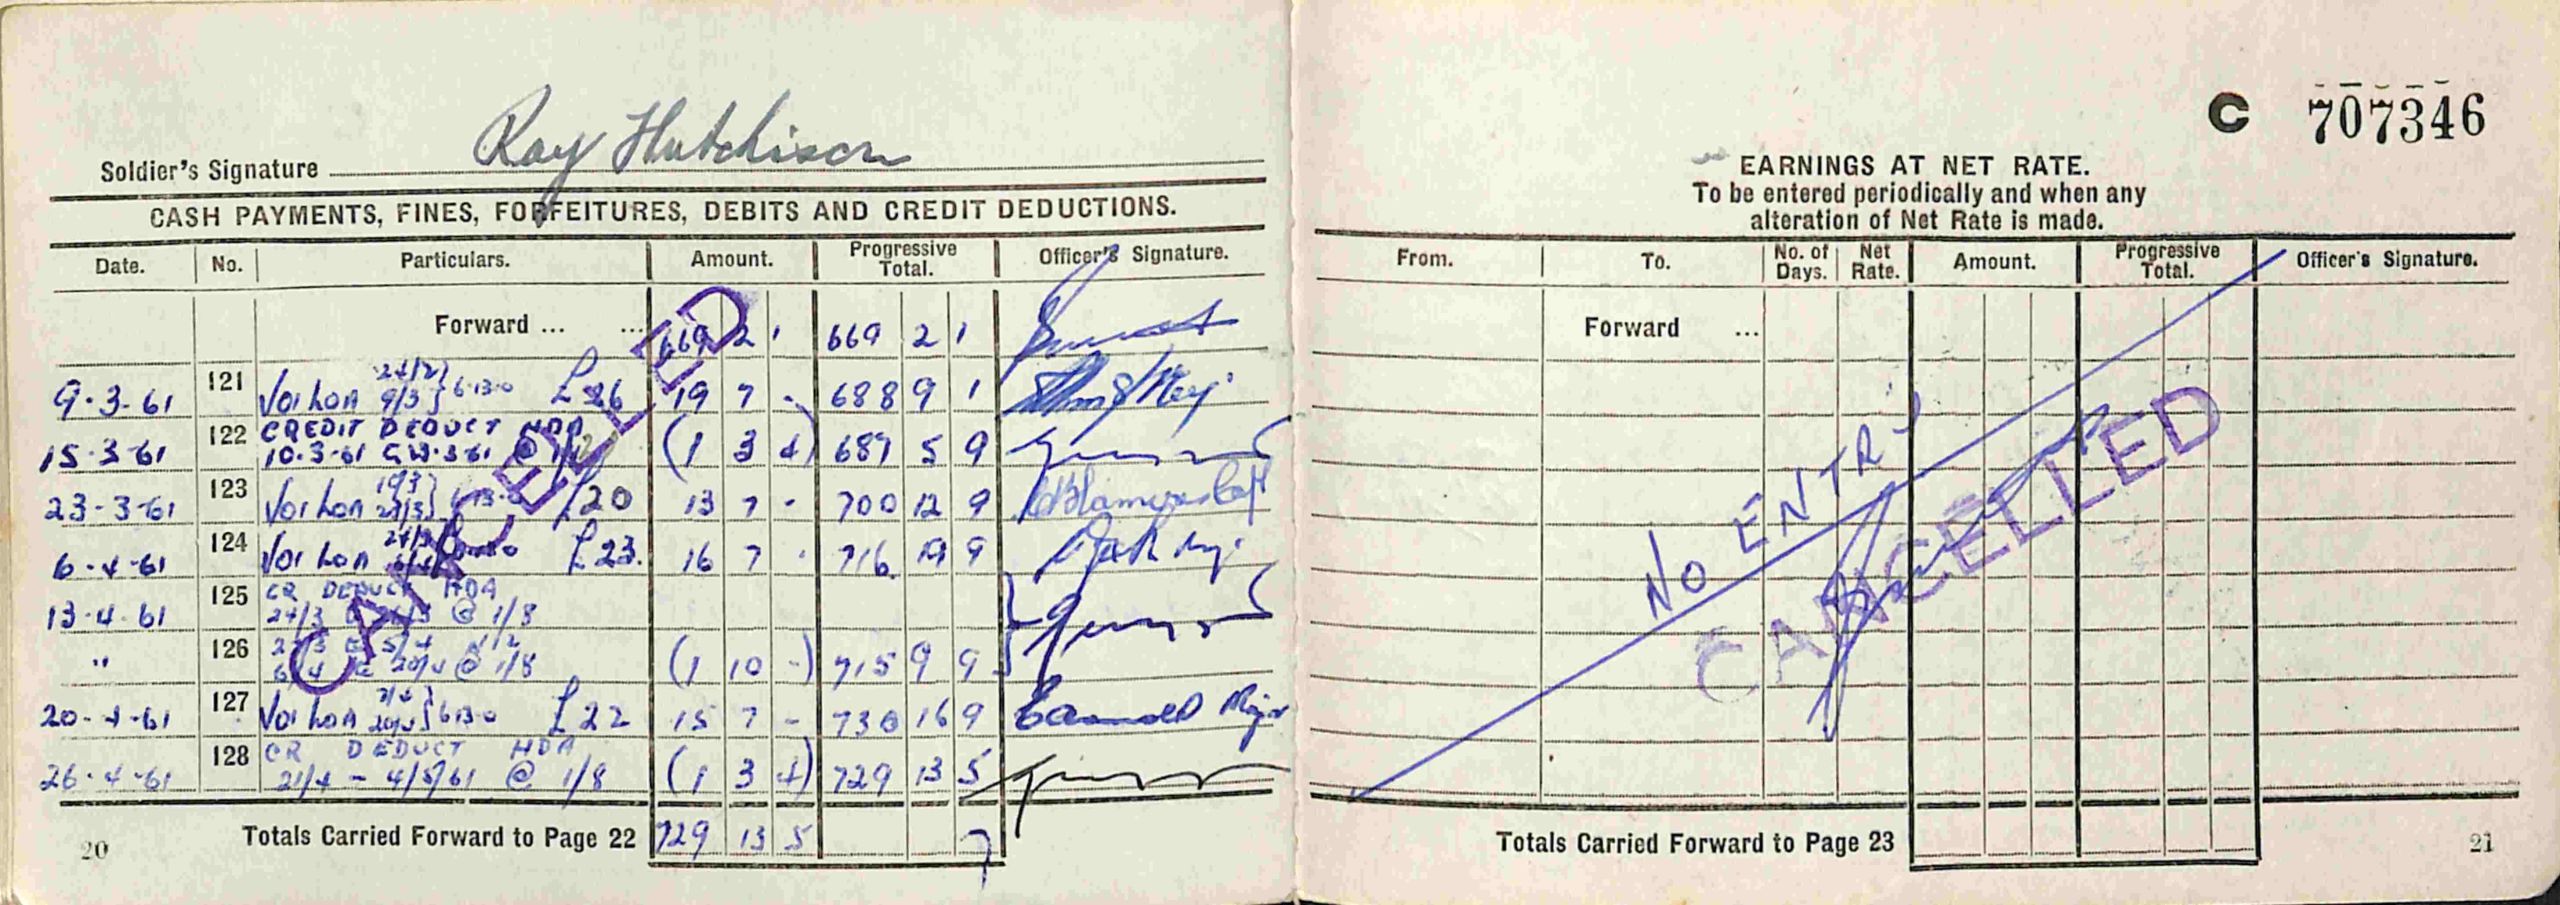 Soldier's Signature Ray Hutchison
CASH PAYMENTS, FINES, FORFEITURES, DEBITS AND CREDIT DEDUCTIONS.
Date. No. Particulars. Amount. Progressive Total. Officer's Signature.
Forward ... ... 669 2 1 669 2 1
9.3.61 121 9/3 } 6.13.0 £26 19 7 - 688 9 1
15.3.61 122 CREDIT DEDUCT HDA (1 3 4) 687 5 9
23-3-61 123 £20 13 7 - 700 12 9
6-4-61 124 £23. 16 7 - 716 19 9
13.4.61 125 CR DEDUCT HDA
@ 1/8
" 126 6/4 20/4 @ 1/8 (1 10 -) 715 9 9
20-4-61 127 20/4 } 6.13.0 £22 15 7 - 730 16 9
26.4.61 128 CR DEDUCT HDA
21/4 - 4/5/61 @ 1/8 (1 3 4) 729 13 5
Totals Carried Forward to Page 22 729 13 5
20
CANCELLED
C 707346
EARNINGS AT NET RATE.
To be entered periodically and when any
alteration of Net Rate is made.
From. To. No. of Days. Net Rate. Amount. Progressive Total. Officer's Signature.
Forward ...
NO ENTRY
CANCELLED
Totals Carried Forward to Page 23
21